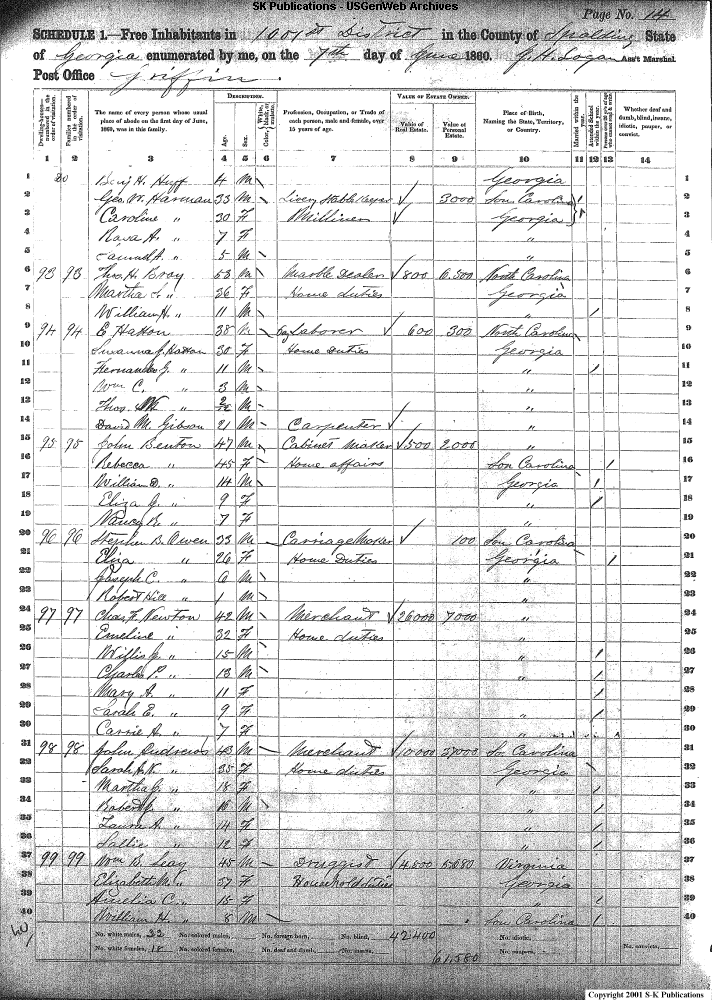 SK Publications - USGenWeb Archives
Page No. 14
SCHEDULE 1.—Free Inhabitants in 1001st District in the County of Spalding State
of Georgia enumerated by me, on the 7th day of June 1860. G. H. Logan Ass't Marshal.
Post Office Griffin.
DESCRIPTION. VALUE OF ESTATE OWNED.
Dwelling-houses—numbered in the order of visitation. Families numbered in the order of visitation. The name of every person whose usual place of abode on the first day of June, 1860, was in this family. Age. Sex. Color, Profession, Occupation, or Trade of each person, male and female, over 15 years of age. Value of Real Estate. Value of Personal Estate. Place of Birth, Naming the State, Territory, or Country. Married within the year. Attended School within the year. Whether deaf and dumb, blind, insane, idiotic, pauper, or convict.
1 2 3 4 5 6 7 8 9 10 11 12 13 14
1 Benj H. Huff 4 M Georgia 1
2 Geo. W. Harman 33 M Livery Stable Keeper 3000 Sou Carolina 2
3 Caroline " 30 F Milliner Georgia 3
4 " 7 F " 4
5 " 5 M " 5
6 93 93 Thos. H. Bray 53 M Marble Dealer 800 6.500 North Carolina 6
7 Martha " 36 F Home duties Georgia 7
8 William H. " 11 M " 8
9 94 94 E Hatton 38 M Laborer 600 300 North Carolina 9
10 Susanna J. Hatton 30 F Home Duties Georgia 10
11 " 11 M " 11
12 Wm C. " 3 M " 12
13 Thos. " M " 13
14 David M. Gibson 21 M Carpenter " 14
15 95 95 John Benton 47 M Cabinet Maker 1500 2000 " 15
16 Rebecca " 45 F Home affairs Sou Carolina 16
17 William D. " 14 M Georgia 17
18 Eliza J. " 9 F " 18
19 Nancy " 7 F " 19
20 96 96 Stephen B. Owen 33 M Carriage Maker 100 Sou Carolina 20
21 Eliza " 26 F Home Duties Georgia 21
22 Joseph C. " 6 M " 22
23 Robert Hill " 1 M " 23
24 97 97 Chas F. Newton 42 M Merchant 26000 7000 " 24
25 Emeline " 32 F Home duties " 25
26 Willis " 15 M " 26
27 Charles P. " 13 M " 27
28 Mary A. " 11 F " 28
29 Sarah E. " 9 F " 29
30 Carrie A. " 7 F " 30
31 98 98 John Andrews 43 M Merchant 10000 37000 So Carolina 31
32 Sarah " 35 F Home duties Georgia 32
33 Martha " 18 F " 33
34 Robert " 16 M " 34
35 Laura A. " 14 F " 35
36 Sallie " 12 F " 36
37 99 99 Wm B. Seay 45 M Druggist 4.500 5.680 Virginia 37
38 Elizabeth M. " 37 F Household duties Georgia 38
39 Amelia C. " 15 F " 39
40 William H. " 8 M Sou Carolina 40
No. white males, 22 No. colored males, No. foreign born, No. blind, 42400 No. idiotic,
No. white females, 18 No. colored females, No. deaf and dumb, No. insane, 61,580 No. paupers, No. convicts,
Copyright 2001 S-K Publications